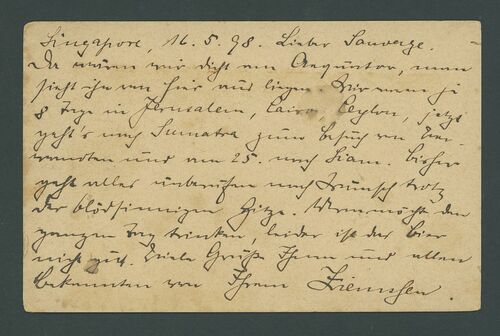 Singapore, 16. 5. 98. Lieber
Da wären wir dicht am Aequator, man
sieht ihn von hier aus liegen. Wir waren je
8 Tage in Jerusalem, Cairo, Ceylon, jetzt
geht's nach Sumatra zum Besuch von Ver-
wandten und am 25. nach Siam. Bisher
geht alles unberufen nach Wunsch trotz
der blödsinnigen Hitze. Man möcht den
ganzen Tag trinken, leider ist das Bier
nicht gut. Viele Grüße Ihnen und allen
Bekannten von Ihrem